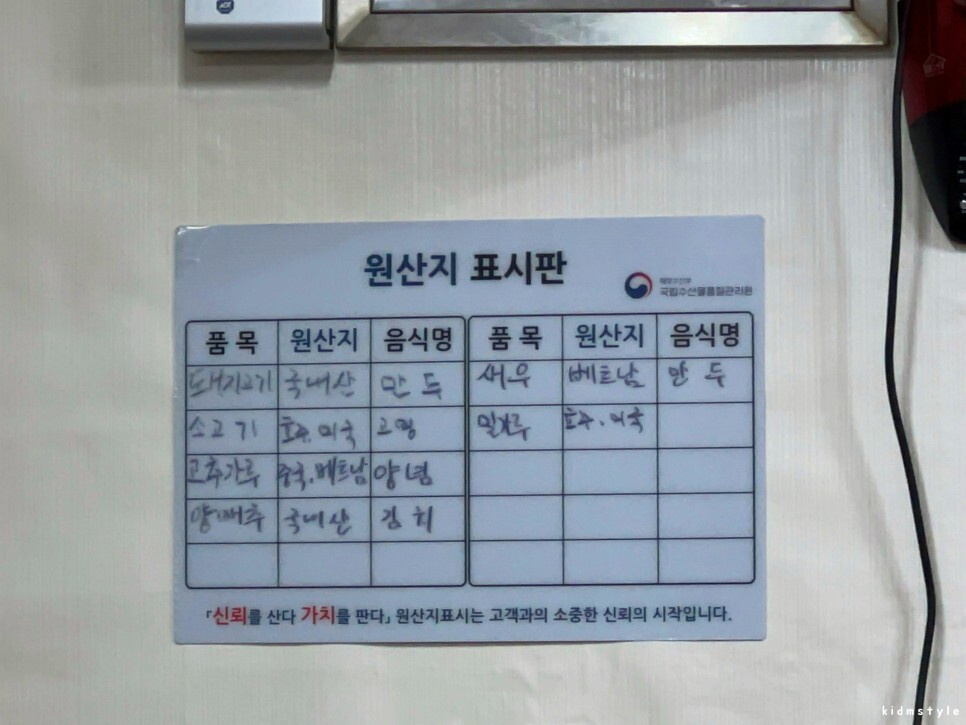 ADT
원산지 표시판
해양수산부
국립수산물품질관리원
품 목 원산지 음식명 품 목 원산지 음식명
돼지고기 국내산 만두 새우 베트남 만두
소고기 호주.미국 고명 밀가루 호주.미국
고추가루 중국.베트남 양념
양배추 국내산 김치
「신뢰를 산다 가치를 판다」 원산지표시는 고객과의 소중한 신뢰의 시작입니다.
kidmstyle